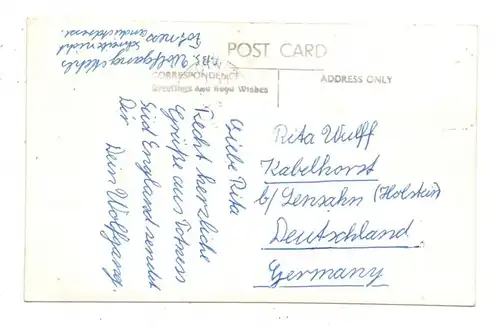 POST CARD
CORRESPONDENCE
Greetings and Good Wishes
ADDRESS ONLY
Liebe Rita
Recht herzliche
Grüße aus Totness
Süd England sendet
Dir Dein Wolfgang.
Wolfgang
schreibe nicht
Rita Wulff
Kabelhorst
b/ Lensahn (Holstein)
Deutschland
Germany